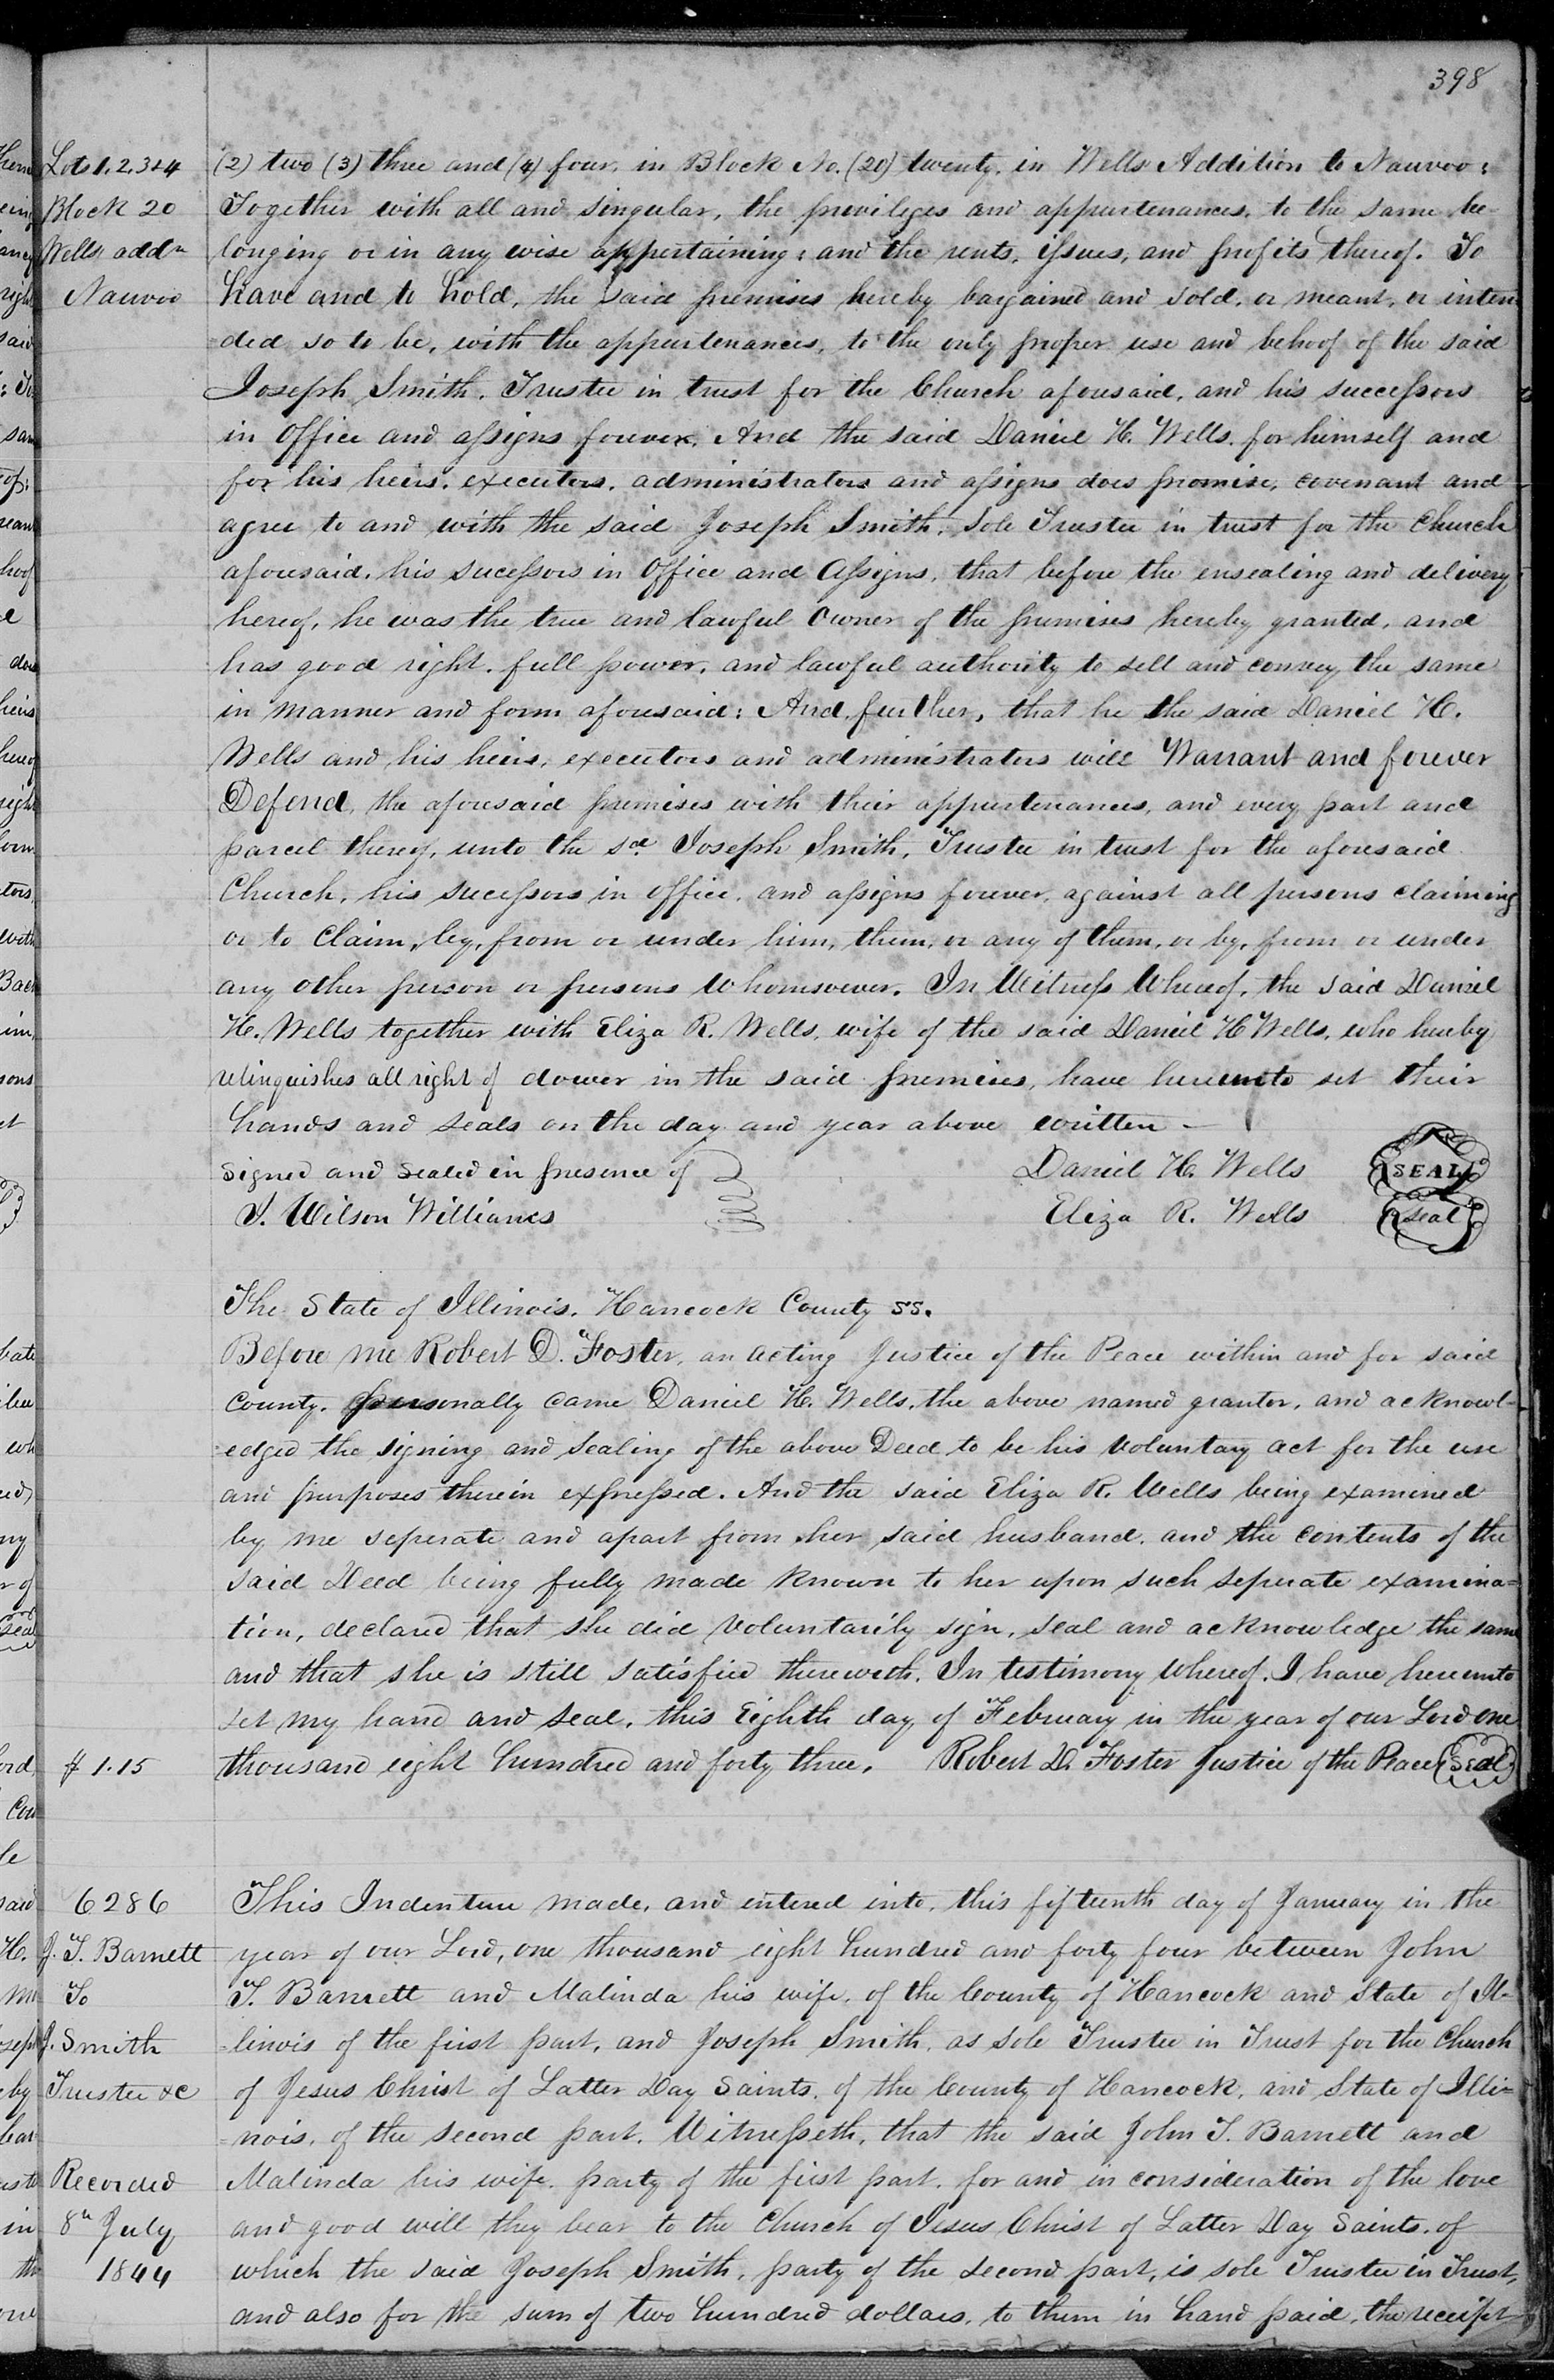 398
Lots 1, 2, 3 & 4
Block 20
Wells addn
Nauvoo
(2) two (3) three and (4) four, in Block No. (20) twenty, in Wells Addition to Nauvoo;
Together with all and singular, the privileges and appurtenances, to the same be-
longing or in any wise appertaining; and the rents, issues, and profits thereof. To
have and to hold, the said premises hereby bargained and sold, or meant, or inten
ded so to be, with the appurtenances, to the only proper use and behoof of the said
Joseph Smith, Trustee in trust for the Church aforesaid, and his successors
in Office and assigns forever. And the said Daniel H. Wells, for himself and
for his heirs, executors, administrators and assigns does promise, covenant and
agree to and with the said Joseph Smith, Sole Trustee in trust for the Church
aforesaid, his sucessors in Office and Assigns, that before the ensealing and delivery
hereof, he was the true and lawful Owner of the premises hereby granted, and
has good right, full power, and lawful authority to sell and convey the same
in manner and form aforesaid: And, further, that he the said Daniel H.
Wells and his heirs, executors and administrators will Warrant and forever
Defend, the aforesaid premises with their appurtenances, and every part and
parcel thereof, unto the sd. Joseph Smith, Trustee in trust for the aforesaid
Church, his sucessors in office, and assigns forever, against all persons claiming
or to Claim, by, from or under him, them, or any of them, or by, from or under
any other person or persons whomsoever. In Witness Whereof, the said Daniel
H. Wells together with Eliza R. Wells, wife of the said Daniel H Wells, who hereby
relinquishes all right of dower in the said premises, have hereunto set their
hands and seals on the day and year above written -
Signed and Sealed in presence of Daniel H. Wells SEAL
J. Wilson Williams Eliza R. Wells Seal
The State of Illinois, Hancock County SS.
Before me Robert D. Foster, an acting Justice of the Peace within and for said
County, personally came Daniel H. Wells, the above named grantor, and acknowl-
edged the signing and sealing of the above Deed to be his voluntary act for the use
and purposes therein expressed. And the said Eliza R. Wells being examined
by me seperate and apart from her said husband, and the contents of the
said Deed being fully made known to her upon such seperate examina=
tion, declared that she did voluntarily sign, seal and acknowledge the same
and that she is still satisfied therewith. In testimony whereof, I have hereunto
set my hand and seal, this Eighth day of February in the year of our Lord one
thousand eight hundred and forty three. Robert D. Foster Justice of the Peace Seal
$ 1.15
6286
J. T. Barnett
To
J. Smith
Trustee &c
Recorded
8th July
1844
This Indenture made, and entered into, this fifteenth day of January in the
year of our Lord, one thousand eight hundred and forty four between John
T. Barnett and Malinda his wife, of the County of Hancock and State of Il-
=linois of the first part, and Joseph Smith, as sole Trustee in Trust for the Church
of Jesus Christ of Latter Day Saints, of the County of Hancock, and State of Illi=
=nois, of the second part, Witnesseth, that the said John T. Barnett and
Malinda his wife, party of the first part, for and in consideration of the love
and good will they bear to the Church of Jesus Christ of Latter Day Saints, of
which the said Joseph Smith, party of the second part, is sole Trustee in Trust,
and also for the sum of two hundred dollars, to them in hand paid, the receipt